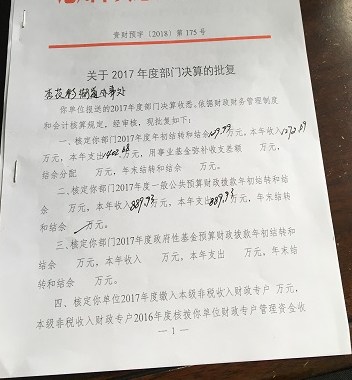 资财预字〔2018〕第 175号
关于 2017 年度部门决算的批复
街道办事处
你单位报送的2017年度部门决算收悉。依据财政财务管理制度
和会计核算规定，经审核，现批复如下：
一、核定你部门2017年度年初结转和结余 万元，本年收入
万元，本年支出 万元，用事业基金弥补收支差额 万元，
结余分配 万元，年末结转和结余 万元。
二、核定你部门2017年度一般公共预算财政拨款年初结转和结
余 万元，本年收入889.93万元，本年支出889.93万元，年末结转
和结余 万元。
三、核定你部门2017年度政府性基金预算财政拨款年初结转和
结余 万元，本年收入 万元，本年支出 万元，年末结
转和结余 万元。
四、核定你单位2017年度缴入本级非税收入财政专户 万元，
本级非税收入财政专户2016年度核拨你单位财政专户管理资金收
— 1 —